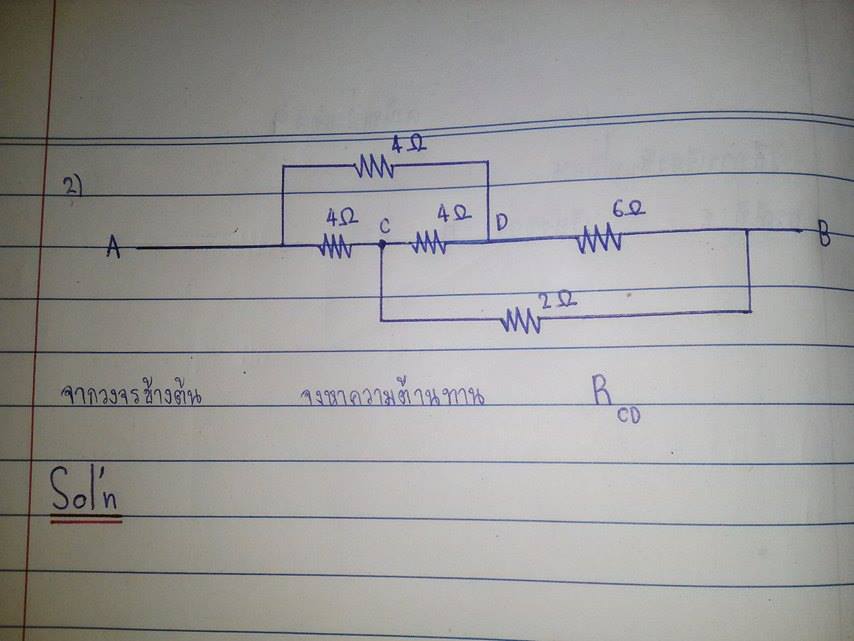 4Ω
2)
4Ω C 4Ω D 6Ω
A B
2Ω
จากวงจรข้างต้น จงหาความต้านทาน R_CD
Sol'n